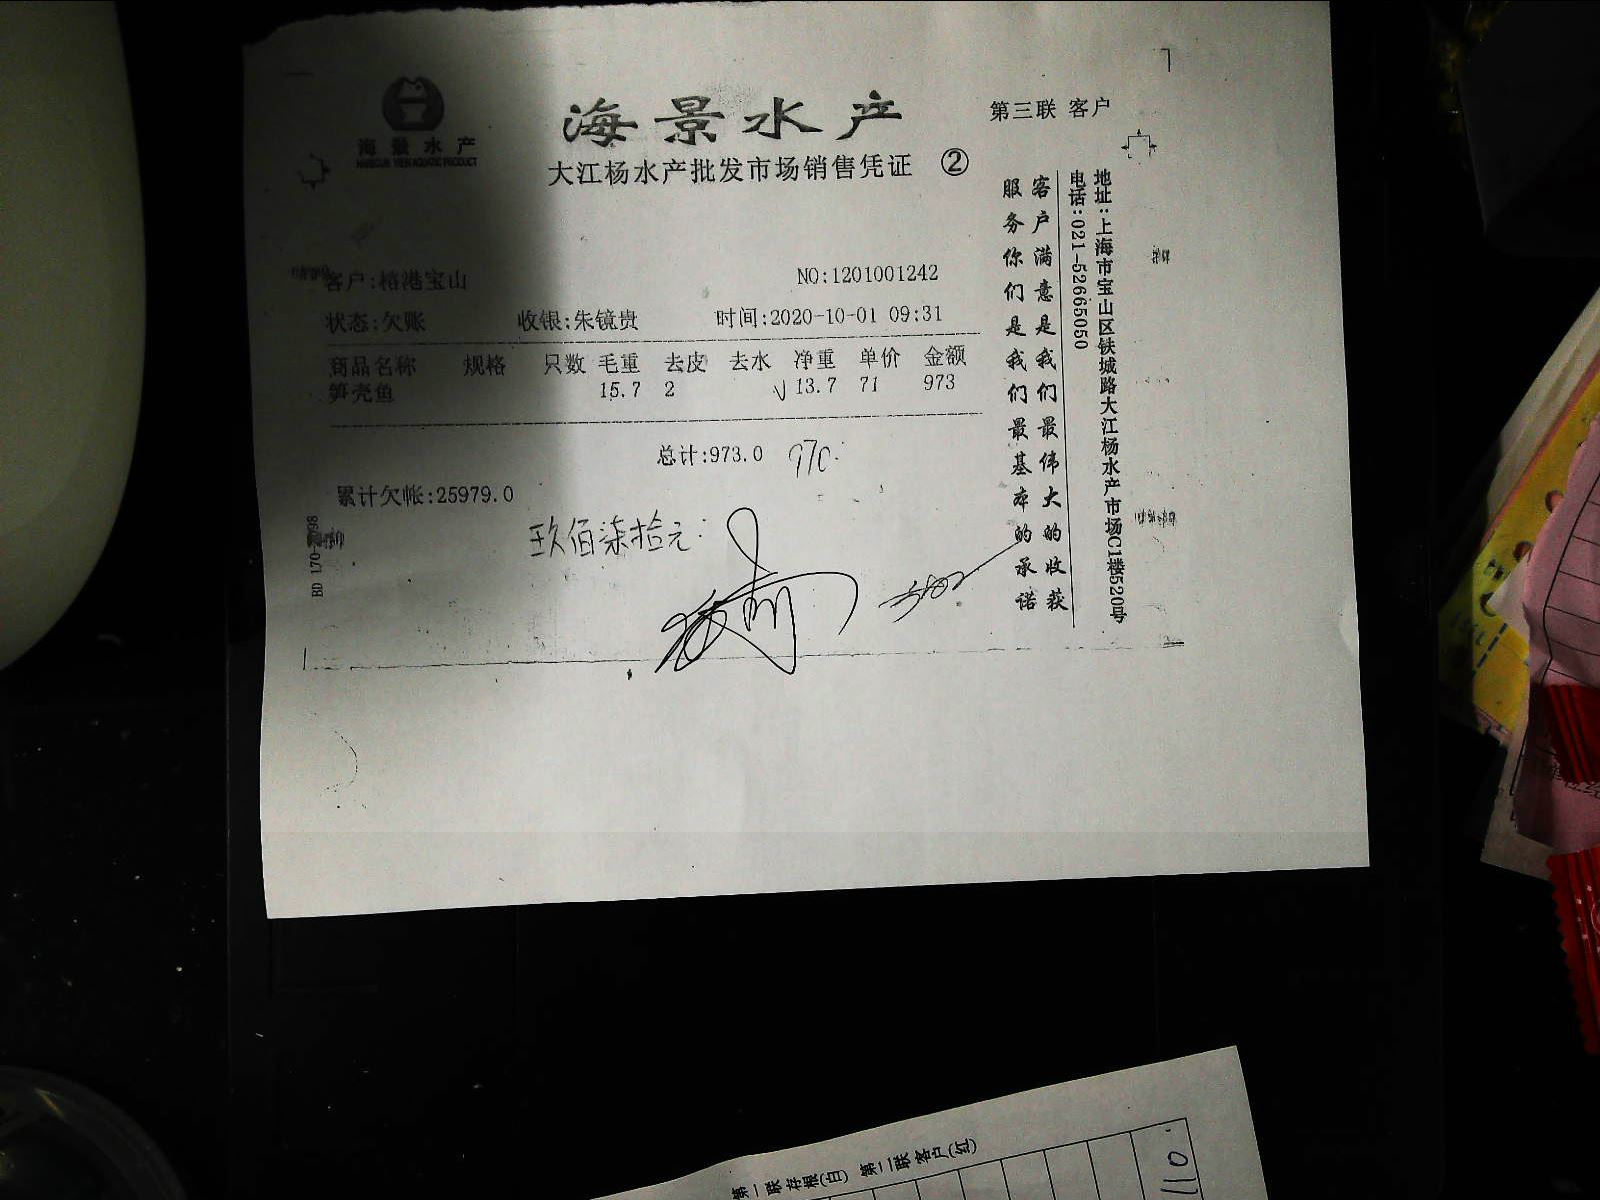 海景水产
HARBOUR VIEW AQUATIC PRODUCT
海景水产
大江杨水产批发市场销售凭证 ②
第三联 客户
客户:榕港宝山
NO:1201001242
状态:欠账 收银:朱镜贵 时间:2020-10-01 09:31
商品名称 规格 只数 毛重 去皮 去水 净重 单价 金额
笋壳鱼 15.7 2 √13.7 71 973
总计:973.0 970.
累计欠帐:25979.0
玖佰柒拾元:
客户满意是我们最伟大的收获
服务你们是我们最基本的承诺
地址:上海市宝山区铁城路大江杨水产市场C1楼520号
电话:021-52665050
第一联存根(白) 第二联客户(红)
110